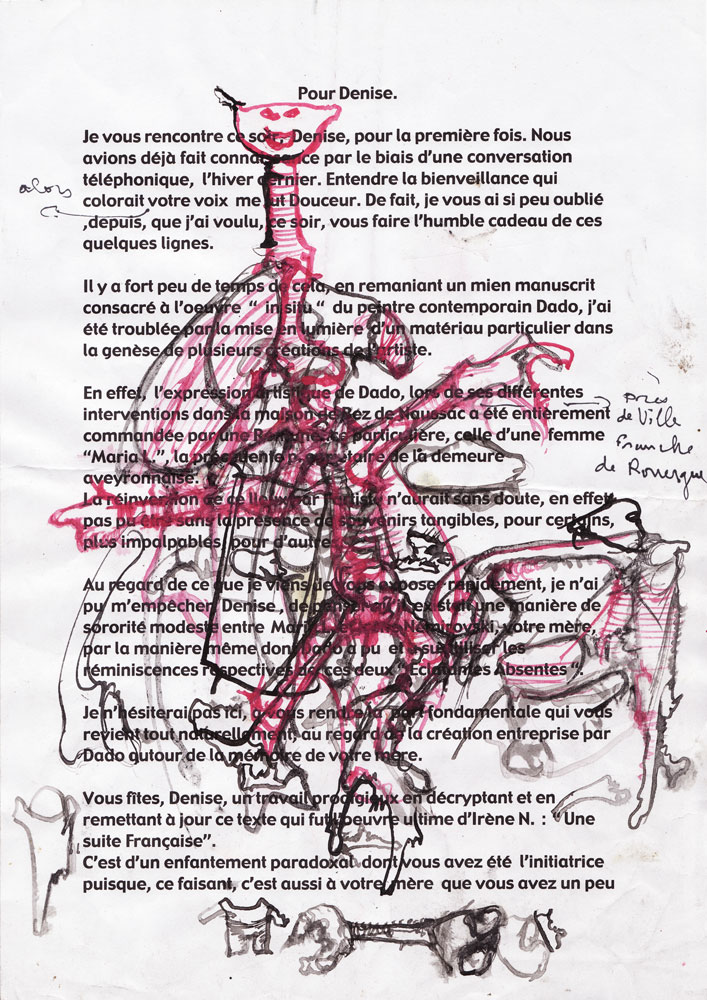 Pour Denise.
Je vous rencontre ce soir, Denise, pour la première fois. Nous
avions déjà fait connaissance par le biais d'une conversation
téléphonique, l'hiver dernier. Entendre la bienveillance qui
alors
colorait votre voix me fut Douceur. De fait, je vous ai si peu oublié
,depuis, que j'ai voulu, ce soir, vous faire l'humble cadeau de ces
quelques lignes.
Il y a fort peu de temps de cela, en remaniant un mien manuscrit
consacré à l'oeuvre " in situ " du peintre contemporain Dado, j'ai
été troublée par la mise en lumière d'un matériau particulier dans
la genèse de plusieurs créations de l'artiste.
En effet, l'expression artistique de Dado, lors de ses différentes
interventions dans la maison de Rez de Naussac a été entièrement
près
de Ville
franche
de Rouergue
commandée par une particulière, celle d'une femme
"Maria L.", la précédente propriétaire de la demeure
aveyronnaise.
La réinvention de ce lieu par l'artiste n'aurait sans doute, en effet
pas pu être sans la présence de souvenirs tangibles, pour certains,
plus impalpables pour d'autres
Au regard de ce que je viens de vous exposer rapidement, je n'ai
pu m'empêcher, Denise , de penser qu'il existait une manière de
sororité modeste entre Maria Némirovski, votre mère,
par la manière même dont Dado a pu et su utiliser les
réminiscences respectives de ces deux " Eclatantes Absentes ".
Je n'hésiterai pas ici, à vous rendre la part fondamentale qui vous
revient tout naturellement, au regard de la création entreprise par
Dado autour de la mémoire de votre mère.
Vous fîtes, Denise, un travail prodigieux en décryptant et en
remettant à jour ce texte qui fut l'oeuvre ultime d'Irène N. : " Une
suite Française".
C'est d'un enfantement paradoxal dont vous avez été l'initiatrice
puisque, ce faisant, c'est aussi à votre mère que vous avez un peu